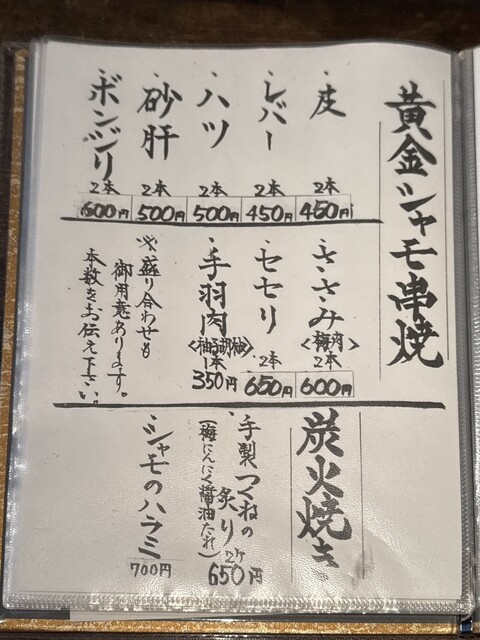 黄金シャモ串焼
・皮
2本
450円
・レバー
2本
450円
・ハツ
2本
500円
・砂肝
2本
500円
・ボンジリ
2本
600円
・ささみ
<梅肉>
2本
600円
・セセリ
2本
650円
・手羽肉
<柚子胡椒>
1本
350円
※盛り合わせも
御用意あります。
本数をお伝え下さい。
炭火焼き
・手製つくねの
炙り
(梅にんにく醤油たれ)
2ケ
650円
・シャモのハラミ
700円